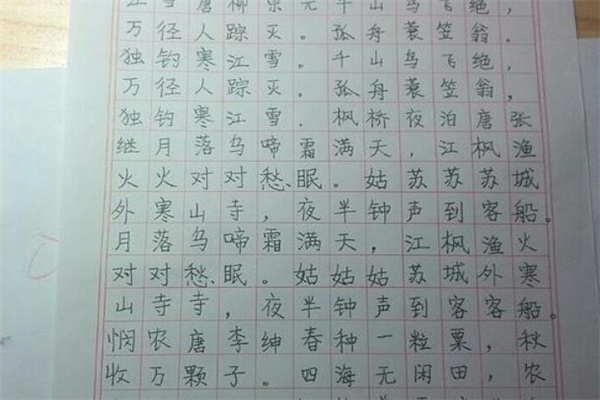 江雪唐柳宗元千山鸟飞绝,
万径人踪灭。孤舟蓑笠翁。
独钓寒江雪。千山鸟飞绝,
万径人踪灭,孤舟蓑笠翁,
独钓寒江雪.枫桥夜泊唐张
继月落乌啼霜满天,江枫渔
火火对对愁眠。姑苏苏苏城
外寒山寺,夜半钟声到客船。
月落乌啼霜满天,江枫渔火
对对愁眠。姑姑姑苏城外寒
山寺寺,夜半钟声到客客船。
悯农唐李绅春种一粒粟,秋
收万颗子。四海无闲田,农